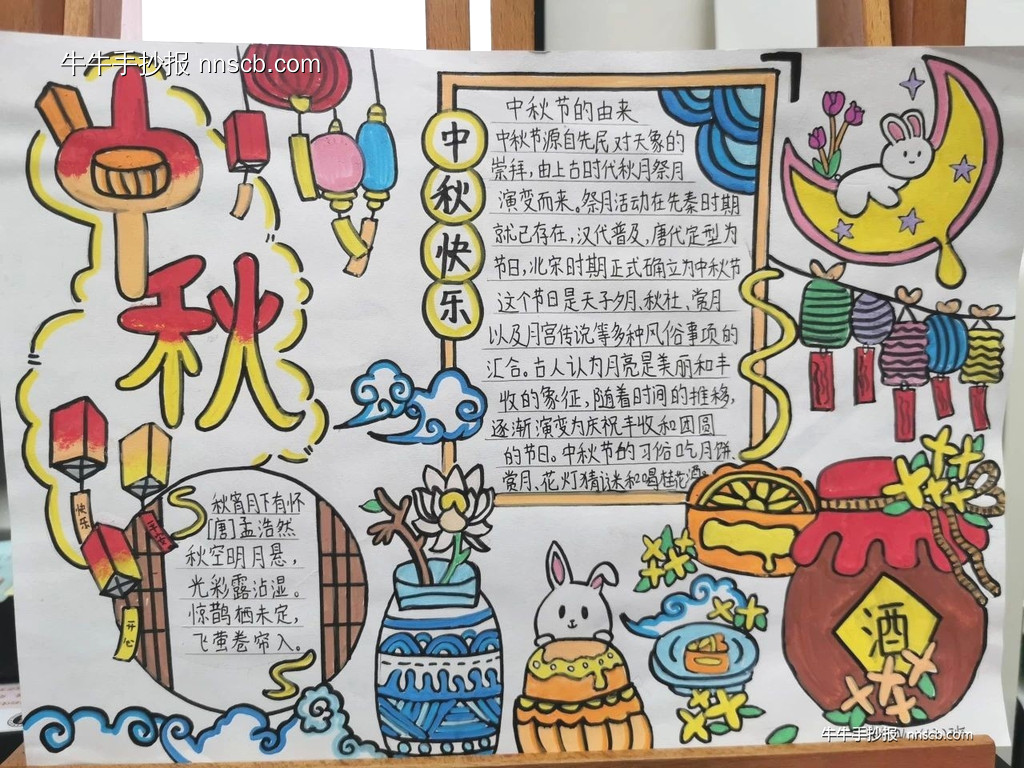 牛牛手抄报 nnscb.com
中秋
中秋快乐
中秋节的由来
中秋节源自先民对天象的
崇拜,由上古时代秋月祭月
演变而来。祭月活动在先秦时期
就已存在,汉代普及,唐代定型为
节日,北宋时期正式确立为中秋节
这个节日是天子夕月、秋社、赏月
以及月宫传说等多种风俗事项的
汇合。古人认为月亮是美丽和丰
收的象征,随着时间的推移,
逐渐演变为庆祝丰收和团圆
的节日。中秋节的习俗吃月饼、
赏月、花灯猜谜和喝桂花酒。
快乐
开心
秋宵月下有怀
[唐]孟浩然
秋空明月悬,
光彩露沾湿。
惊鹊栖未定,
飞萤卷帘入。
酒
牛牛手抄报 nnscb.com